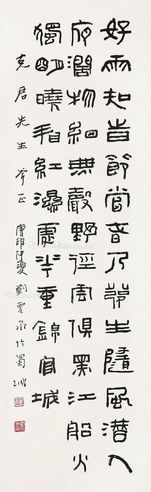 好雨知旹節當旾乃發生隨風潛入
夜潤物細無聲野徑雲俱黑江船火
獨明曉看紅濕處花重錦官城
克君先生 正 劉雲泉於